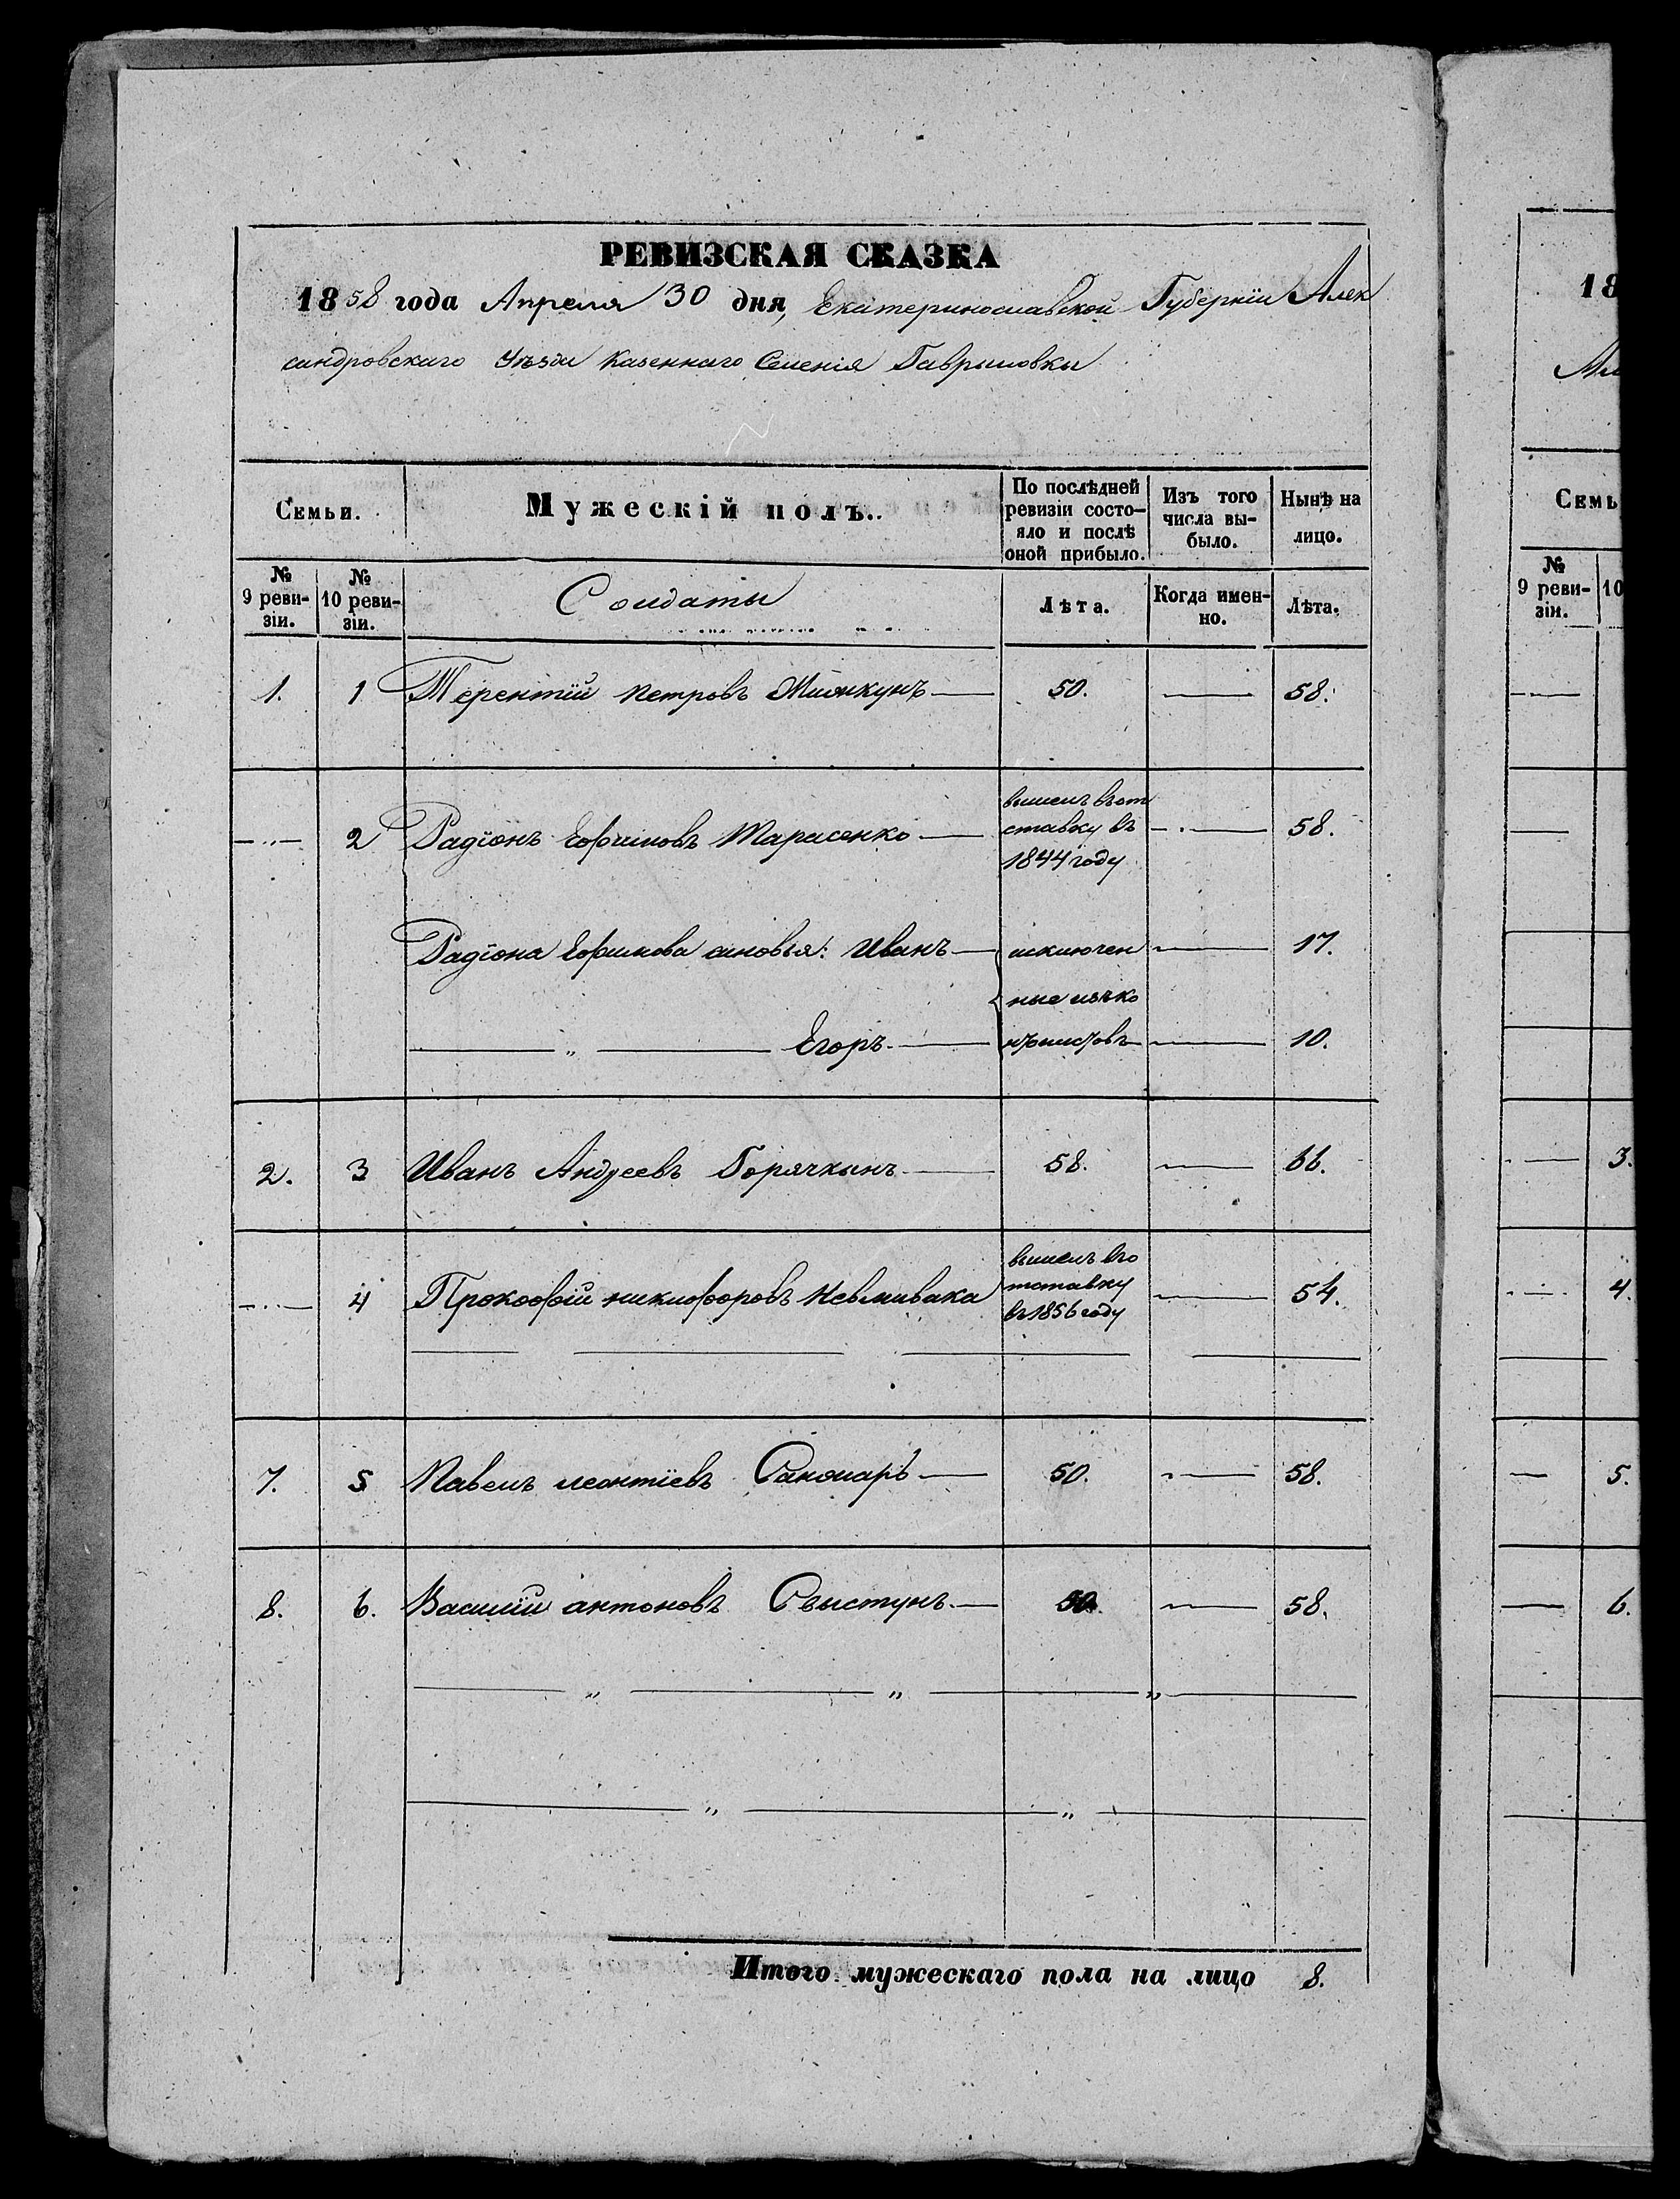 РЕВИЗСКАЯ СКАЗКА
1858 года Апреля 30 дня, Екатеринославской Губерніи Алек
сандровскаго Уѣзда Казеннаго Селенія Гавриловки
Семьи.
Мужескій полъ.
По послѣдней
ревизіи состо-
яло и послѣ
оной прибыло.
Изъ того
числа вы-
было.
Нынѣ на
лицо.
№
9 реви-
зіи.
№
10 реви-
зіи.
Солдаты
Лѣта.
Когда имен-
но.
Лѣта.
1. 1 Терентій Петровъ 50. 58.
вышелъ вѣот
2 Радіонъ Ефимовъ Тарасенко ставку въ 58.
1844 году
Радіона Ефимова сыновья: Иванъ исключен 17.
ные изъ ка
Егоръ. нтонистовъ 10.
2. 3 Иванъ Андреевъ Горячкинъ 58. 66.
вышелъ въо
4 Прокофій никифоровъ Невмивака тставку 54.
въ 1856 году
7. 5 Павелъ леонтіевъ Паномарь 50. 58.
8. 6. Василій антоновъ Свыстунъ 50. 58.
Итого мужескаго пола на лицо 8.
18
Семь
№
9 реви-
зіи.
10
3.
4.
5.
6.